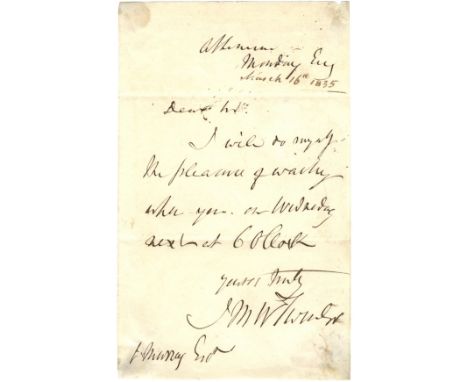 Athenaeum
Monday Evg
March 16th 1835
Dear Sir
I will do myself
the pleasure of waiting
upon you on Wednesday
next at 6 OClock
yours truly
J M W Turner
J Murray Esqr